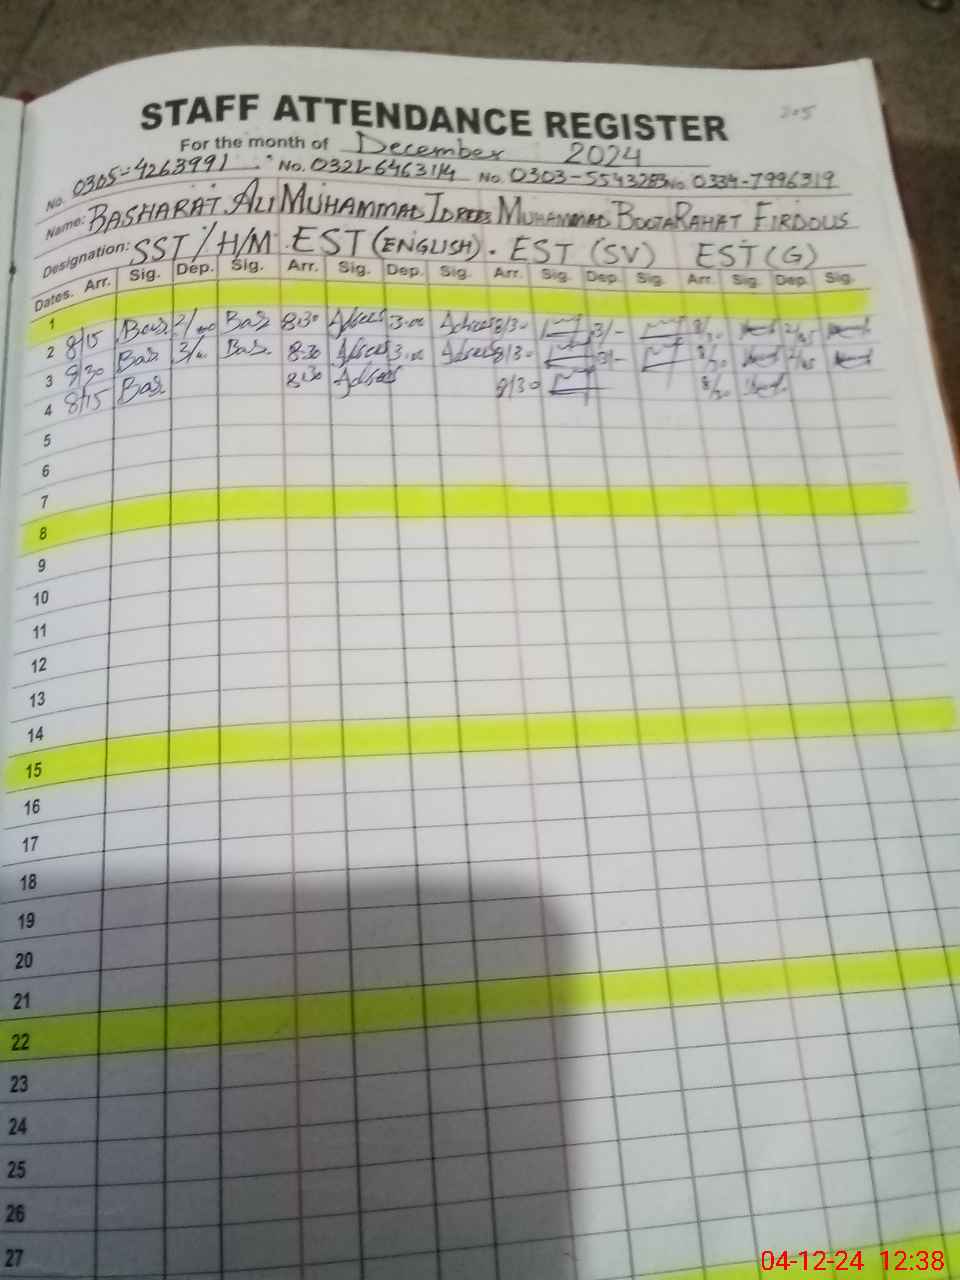 205
STAFF ATTENDANCE REGISTER
For the month of December 2024
No. 0305-4263991 No. 0321-6463114 No. 0303-5543283 No. 0334-7996319
Name: BASHARAT ALI MUHAMMAD IDREES MUHAMMAD BOOTA RAHAT FIRDOUS
Designation: SST/H/M EST (ENGLISH). EST (SV) EST (G)
Dates. Arr. Sig. Dep. Sig. Arr. Sig. Dep. Sig. Arr. Sig. Dep. Sig. Arr. Sig. Dep. Sig.
1
2 8/15 Bas Bas 8:30 3:00 8/30 3/- 8/30 2/45
3 8/30 Bas Bas 8:30 3:00 8/30 3/- 8/30 2/45
4 8/15 Bas 8:30 8/30 8/30
5
6
7
8
9
10
11
12
13
14
15
16
17
18
19
20
21
22
23
24
25
26
27
04-12-24 12:38